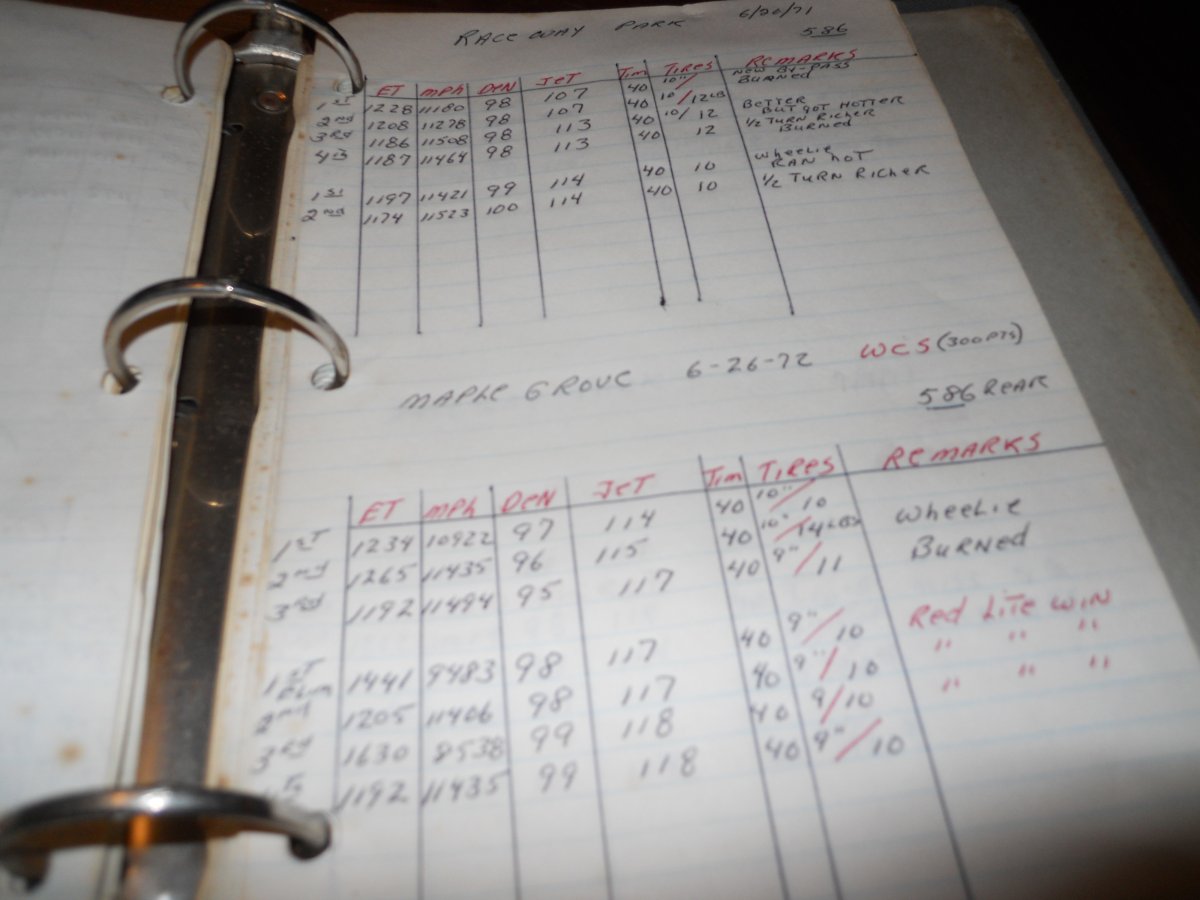 RACEWAY PARK 6/20/71
586
ET MPH DEN JET TIM TIRES REMARKS
1ST 1228 11180 98 107 40 10"/ NEW BY-PASS BURNED
2nd 1208 11278 98 107 40 10/12LB BETTER BUT GOT HOTTER
3Rd 1186 11508 98 113 40 10/12 1/2 TURN RICHER
4th 1187 11464 98 113 40 12 BURNED
WHEELIE
1ST 1197 11421 99 114 40 10 RAN HOT
2nd 1174 11523 100 114 40 10 1/2 TURN RICHER
MAPLE GROVE 6-26-72 WCS (300 PTS)
586 REAR
ET MPH DEN JET TIM TIRES REMARKS
1ST 1234 10922 97 114 40 10"/10 WHEELIE
2nd 1265 11435 96 115 40 10"/14LBS BURNED
3Rd 1192 11494 95 117 40 9"/11
1ST ELIM 1441 9483 98 117 40 9"/10 Red LITE WIN
2nd 1205 11406 98 117 40 9"/10 " " "
3Rd 1630 8538 99 118 40 9/10 " " "
1192 11435 99 118 40 9"/10